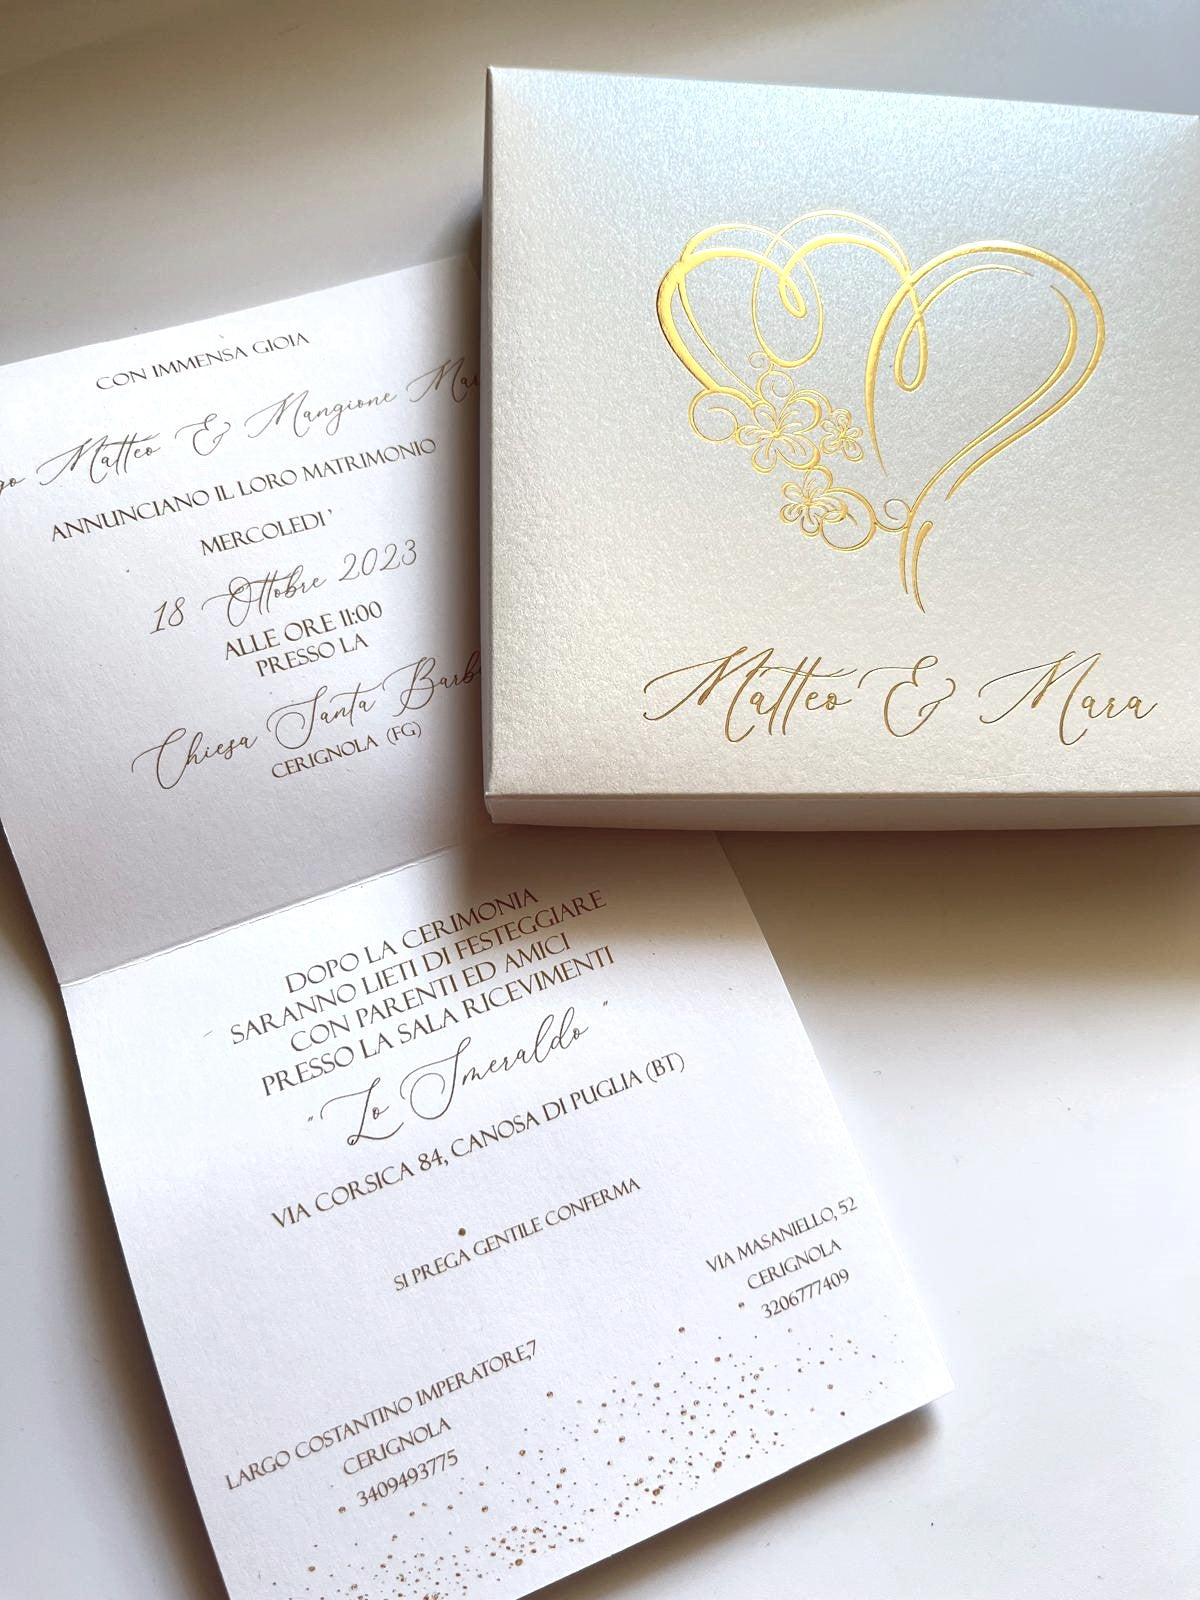 CON IMMENSA GIOIA
Matteo & Mangione
ANNUNCIANO IL LORO MATRIMONIO
MERCOLEDI'
18 Ottobre 2023
ALLE ORE 11:00
PRESSO LA
Chiesa Santa
CERIGNOLA (FG)
Matteo & Mara
DOPO LA CERIMONIA
SARANNO LIETI DI FESTEGGIARE
CON PARENTI ED AMICI
PRESSO LA SALA RICEVIMENTI
"Lo Smeraldo"
VIA CORSICA 84, CANOSA DI PUGLIA (BT)
SI PREGA GENTILE CONFERMA
VIA MASANIELLO, 52
CERIGNOLA
3206777409
LARGO COSTANTINO IMPERATORE,7
CERIGNOLA
3409493775